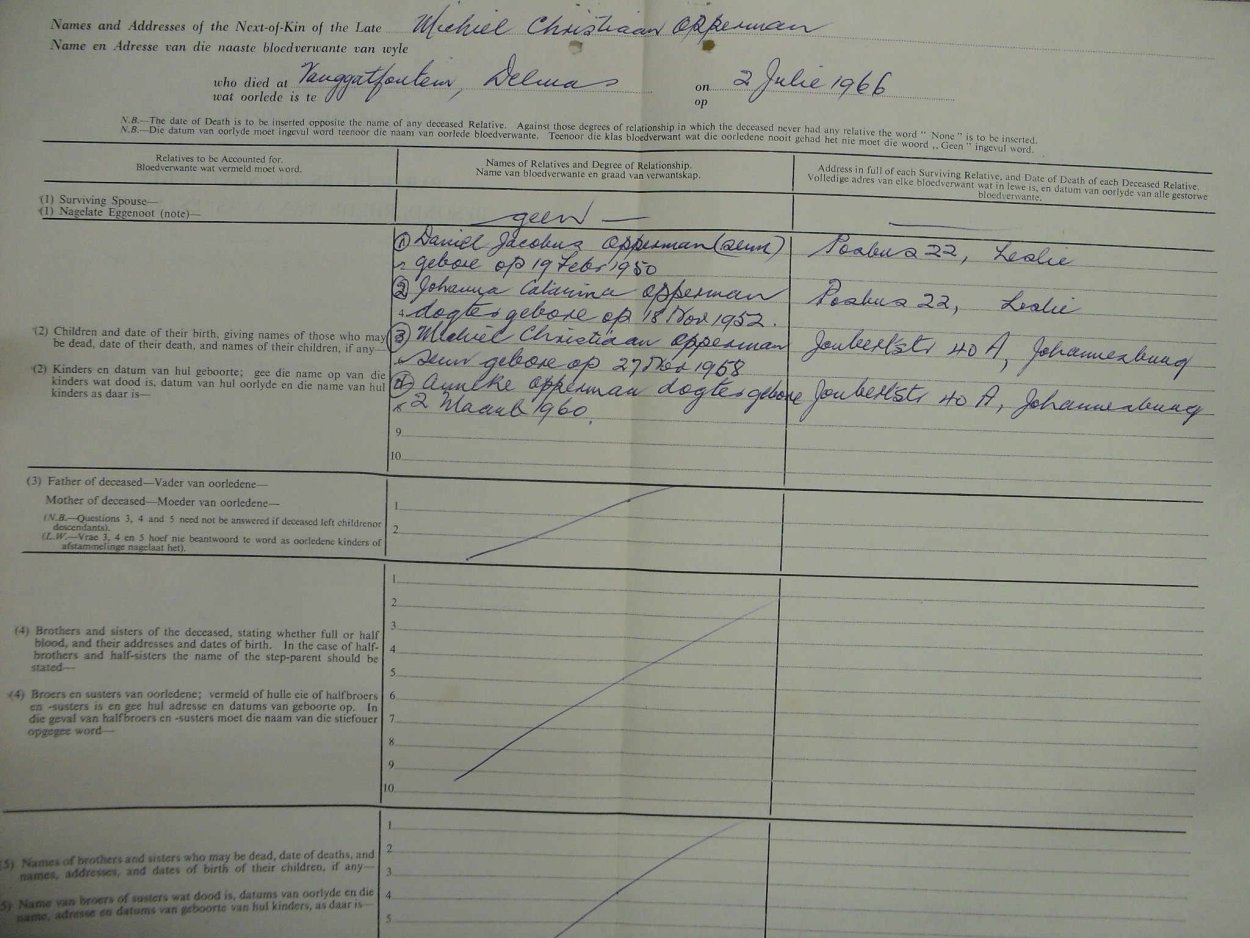 Names and Addresses of the Next-of-Kin of the Late Michiel Christiaan Opperman
Name en Adresse van die naaste bloedverwante van wyle
who died at Vanggatfontein, Delmas on 2 Julie 1966
wat oorlede is te op
N.B.—The date of Death is to be inserted opposite the name of any deceased Relative. Against those degrees of relationship in which the deceased never had any relative the word " None " is to be inserted.
N.B.—Die datum van oorlyde moet ingevul word teenoor die naam van oorlede bloedverwante. Teenoor die klas bloedverwant wat die oorledene nooit gehad het nie moet die woord ,, Geen " ingevul word.
Relatives to be Accounted for.
Bloedverwante wat vermeld moet word.
Names of Relatives and Degree of Relationship.
Name van bloedverwante en graad van verwantskap.
Address in full of each Surviving Relative, and Date of Death of each Deceased Relative.
Volledige adres van elke bloedverwant wat in lewe is, en datum van oorlyde van alle gestorwe
bloedverwante.
(1) Surviving Spouse—
(1) Nagelate Eggenoot (note)—
geen —
(2) Children and date of their birth, giving names of those who may
be dead, date of their death, and names of their children, if any—
(2) Kinders en datum van hul geboorte; gee die name op van die
kinders wat dood is, datum van hul oorlyde en die name van hul
kinders as daar is—
1 Daniel Jacobus Opperman (seun) Posbus 22, Leslie
gebore op 19 Febr 1950
2 Johanna Catarina Opperman Posbus 22, Leslie
4 dogter gebore op 18 Nov 1952.
3 Michiel Christiaan Opperman Joubertstr 40 A, Johannesburg
seun gebore op 27 Nov 1958
4 Anneke Opperman dogter gebore Joubertstr 40 A, Johannesburg
2 Maart 1960.
9
10
(3) Father of deceased—Vader van oorledene—
Mother of deceased—Moeder van oorledene—
(N.B.—Questions 3, 4 and 5 need not be answered if deceased left childrenor
descendants).
(L.W.—Vrae 3, 4 en 5 hoef nie beantwoord te word as oorledene kinders of
afstammelinge nagelaat het).
1
2
(4) Brothers and sisters of the deceased, stating whether full or half
blood, and their addresses and dates of birth. In the case of half-
brothers and half-sisters the name of the step-parent should be
stated—
(4) Broers en susters van oorledene; vermeld of hulle eie of halfbroers
en -susters is en gee hul adresse en datums van geboorte op. In
die geval van halfbroers en -susters moet die naam van die stiefouer
opgegee word—
1
2
3
4
5
6
7
8
9
10
5) Names of brothers and sisters who may be dead, date of deaths, and
names, addresses, and dates of birth of their children, if any—
5) Name van broers of susters wat dood is, datums van oorlyde en die
name, adresse en datums van geboorte van hul kinders, as daar is—
1
2
3
4
5